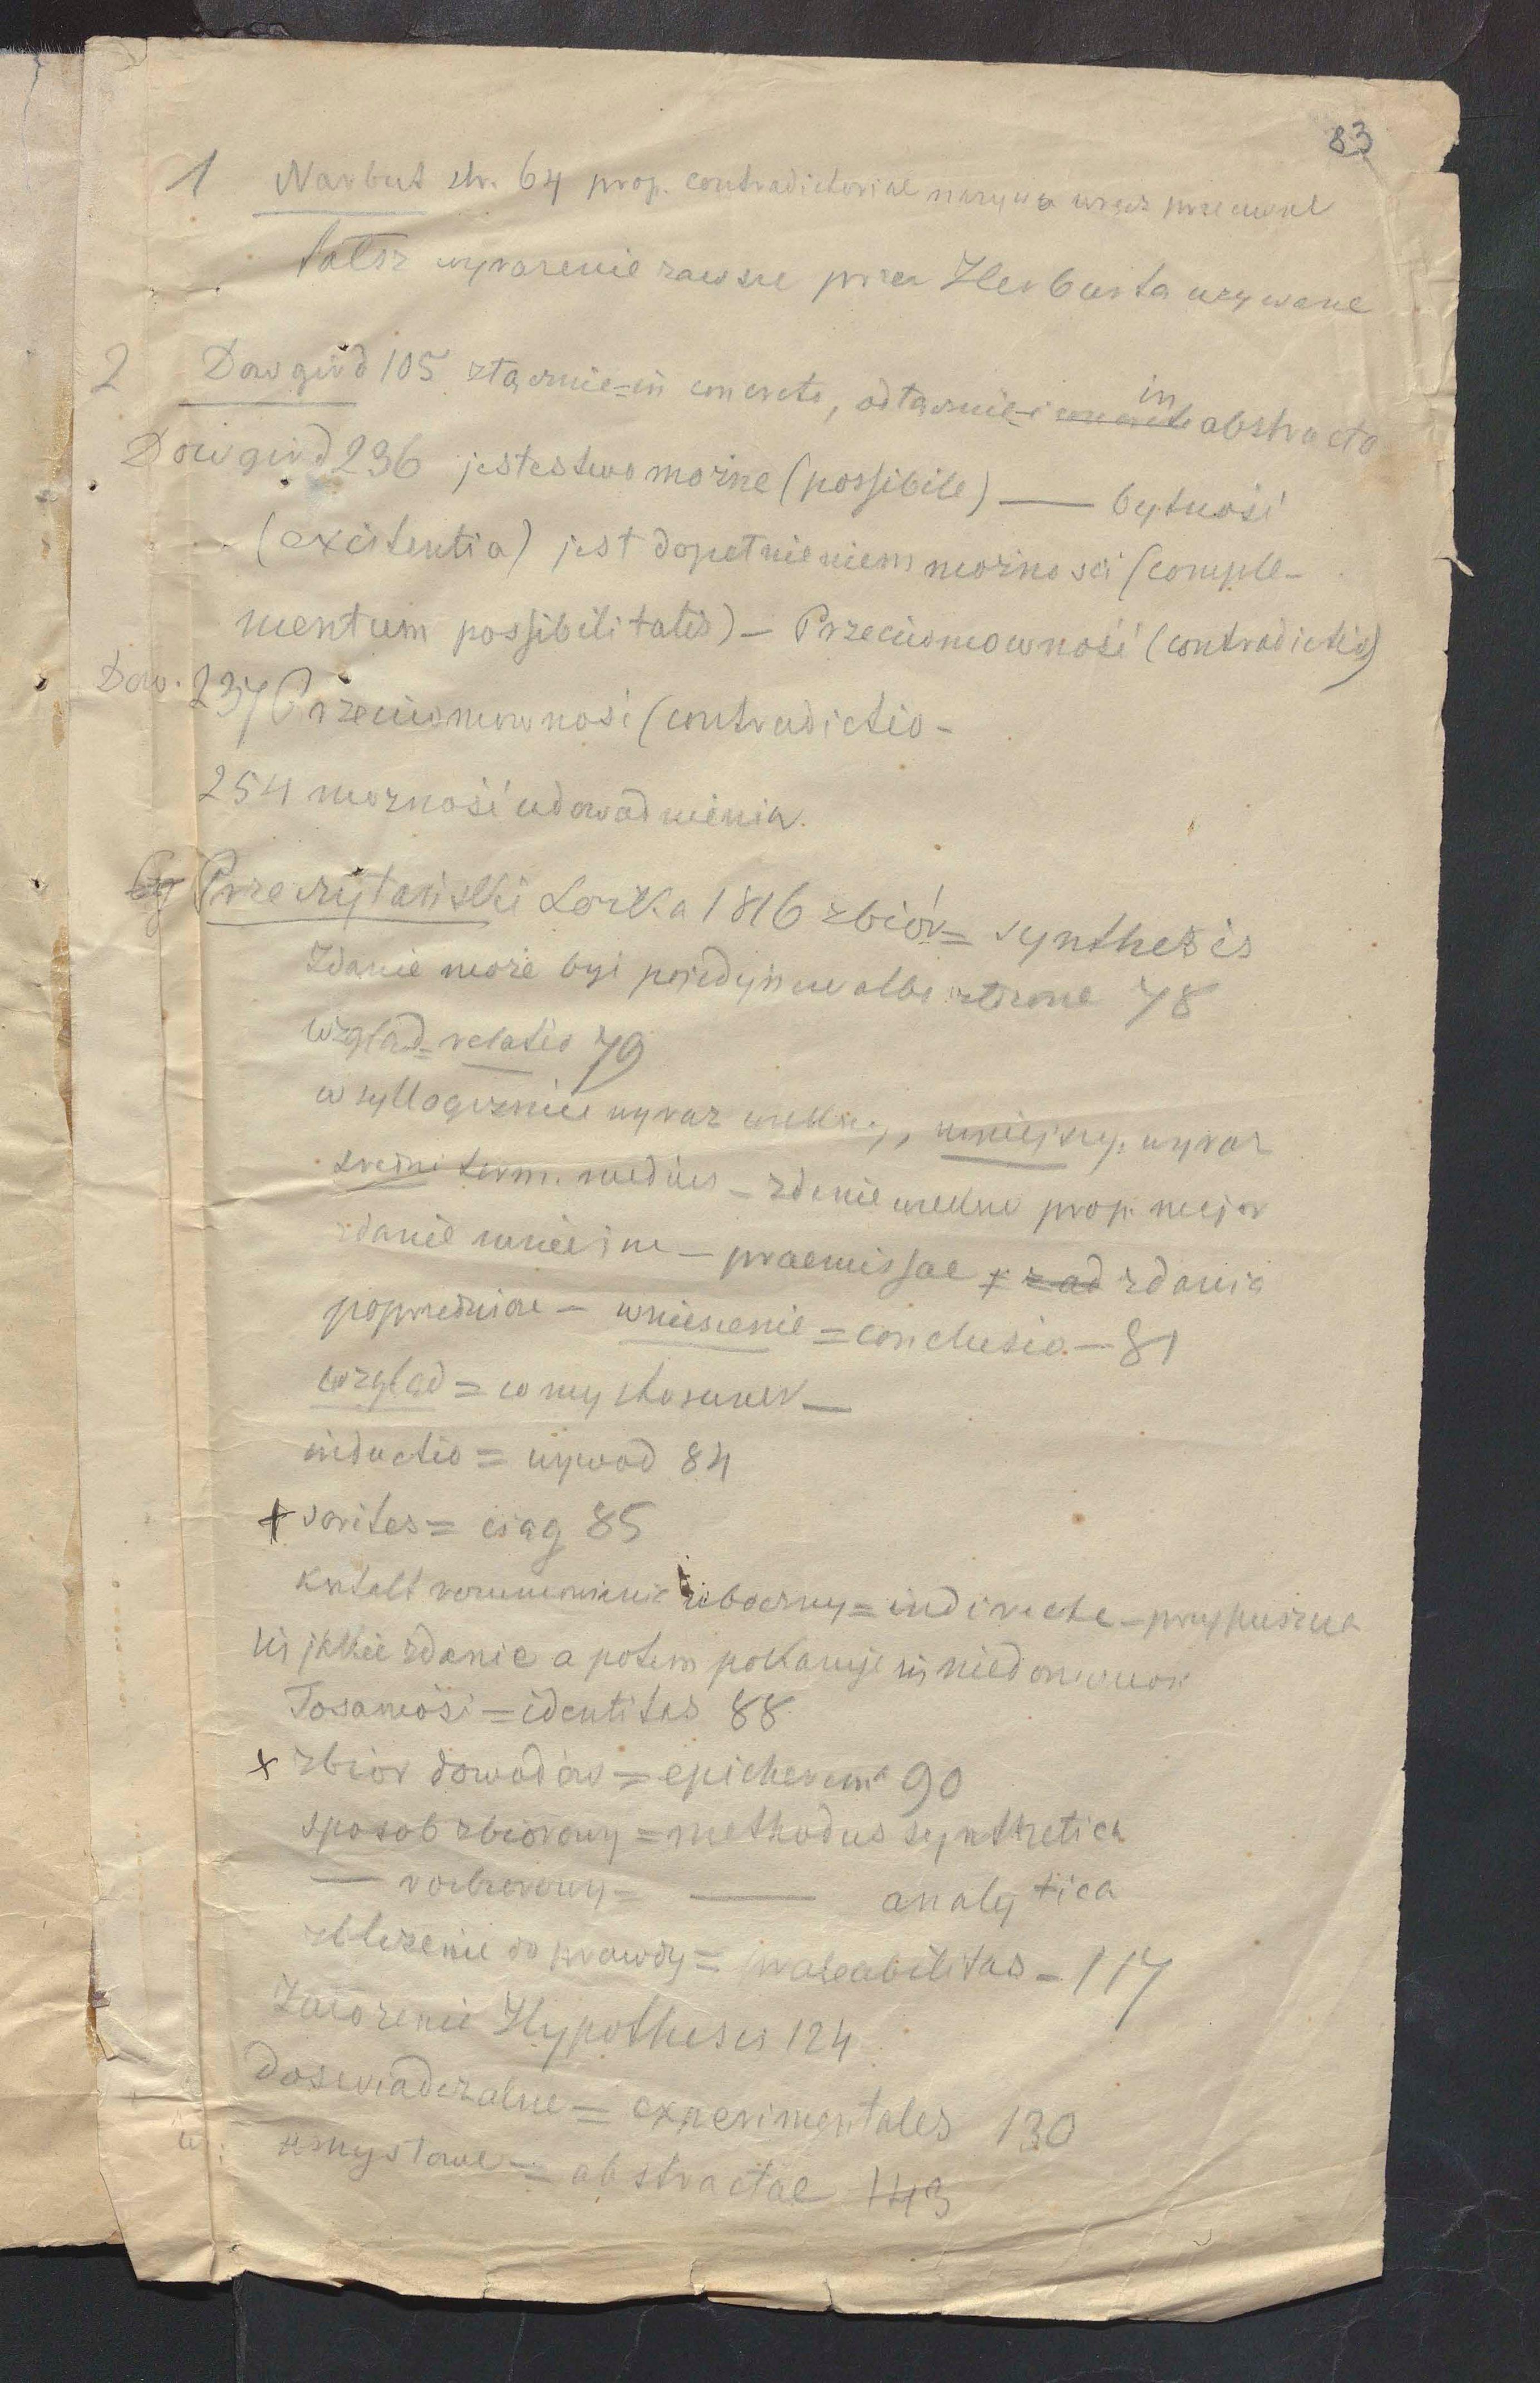 83
1 Narbut str. 64 prop. contradictoriae nazywa wręcz przeciwne
fałsz wyrażenie zawsze przez Herburta używane
2 Dowgird 105 złącznie = in concreto, odłącznie = in abstracto
Dowgird 236 jestestwo możne (possibile) — bytność
(existentia) jest dopełnieniem możności (comple-
mentum possibilitatis) – Przeciwmowność (contradictio)
Dow. 237 Przeciwmowność (contradictio –
254 możność udowadnienia.
Przeczytański Loika 1816 zbiór = synthesis
Zdanie może być pojedyncze albo złożone 78
wzgląd = relatio 79
w syllogizmie wyraz większy, mniejszy, wyraz
średni term. medius – zdanie większe prop. major
zdanie mniejsze – praemissae zdania
poprzednicze – wniesienie = conclusio – 81
wzgląd = stosunek —
inductio = wywod 84
+ sorites = ciąg 85
kształt rozumowania uboczny = indirecte – przypuszcza
się jakie zdanie a potem pokazuje się niedorzeczność
Tosamość = identitas 88
x zbior dowodów = epicherema 90
sposob zbiorowy = methodus synthetica
— rozbiorowy = — analytica
zbliżenie do prawdy = probabilitas – 117
Założenie Hypothesis 124
doswiadczalne = experimentales 130
umysłowe = abstractae 143